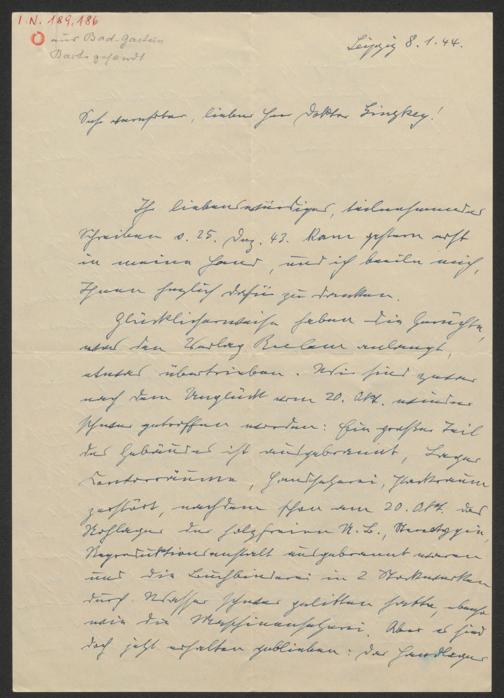 I. N. 189,186
aus Bad-Gastein
Leipzig 8. 1. 44.
Sehr verehrter, lieber Herr Doktor Ginzkey!
Ihr liebenswürdiges, teilnehmendes
Schreiben v. 25. Dez. 43. kam gestern erst
in meine Hand, und ich beeile mich,
Ihnen herzlich dafür zu danken.
Glücklicherweise haben die Gerüchte,
was den Verlag anlangt,
etwas übertrieben. Wir sind zwar
nach dem Unglück vom 20. Okt. wieder
schwer getroffen worden: Ein großer Teil
des Gebäudes ist ausgebrannt, Lager
Kontorräume, Handsetzerei, Packraum
zerstört, nachdem schon am 20. Okt. das
Rohlager der holzfreien Stereotypie,
Reproduktionsanstalt ausgebrannt waren
und die Buchbinderei in 2 Stockwerken
durch Wasser schwer gelitten hatte, ebenso
wie die Maschinensetzerei. Aber es sind
doch jetzt erhalten geblieben: das Handlager